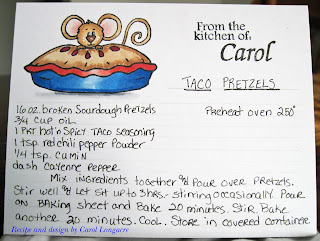 From the
kitchen of:
Carol
TACO PRETZELS
16 oz. broken Sourdough Pretzels
Preheat oven 250°
3/4 cup oil
1 PKT hot'n spicy TACO seasoning
1 tsp red chili pepper Powder
1/4 tsp. CUMIN
dash cayenne PEPPER
Mix ingredients together & Pour over PRETZELS.
Stir well & Let sit up to 3 hrs.- stirring occasionally. Pour
ON BAKING sheet and Bake 20 minutes. Stir. Bake
another 20 minutes. Cool. Store in covered container
Recipe and design by Carol Longacre